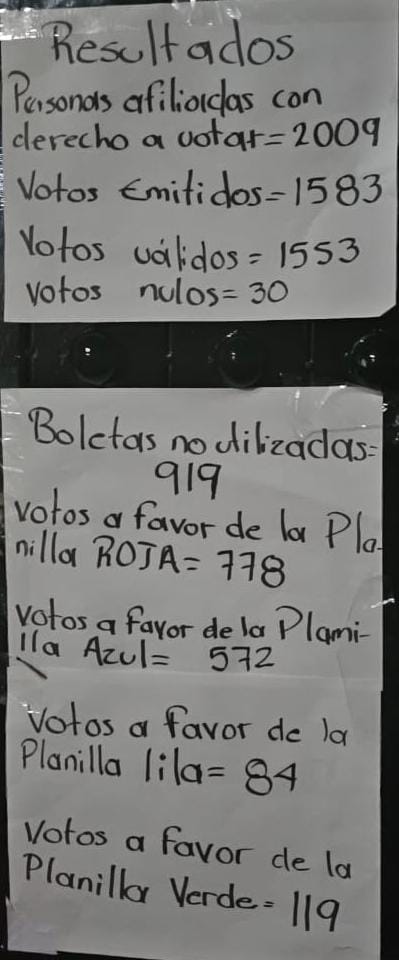 Resultados
Personas afiliadas con
derecho a votar=2009
Votos Emitidos=1583
Votos válidos=1553
votos nulos=30
Boletas no utilizadas=
919
votos a favor de la Pla-
nilla ROJA=778
votos a favor de la Plami-
lla Azul= 572
Votos a favor de la
Planilla lila= 84
Votos a favor de la
Planilla Verde=119